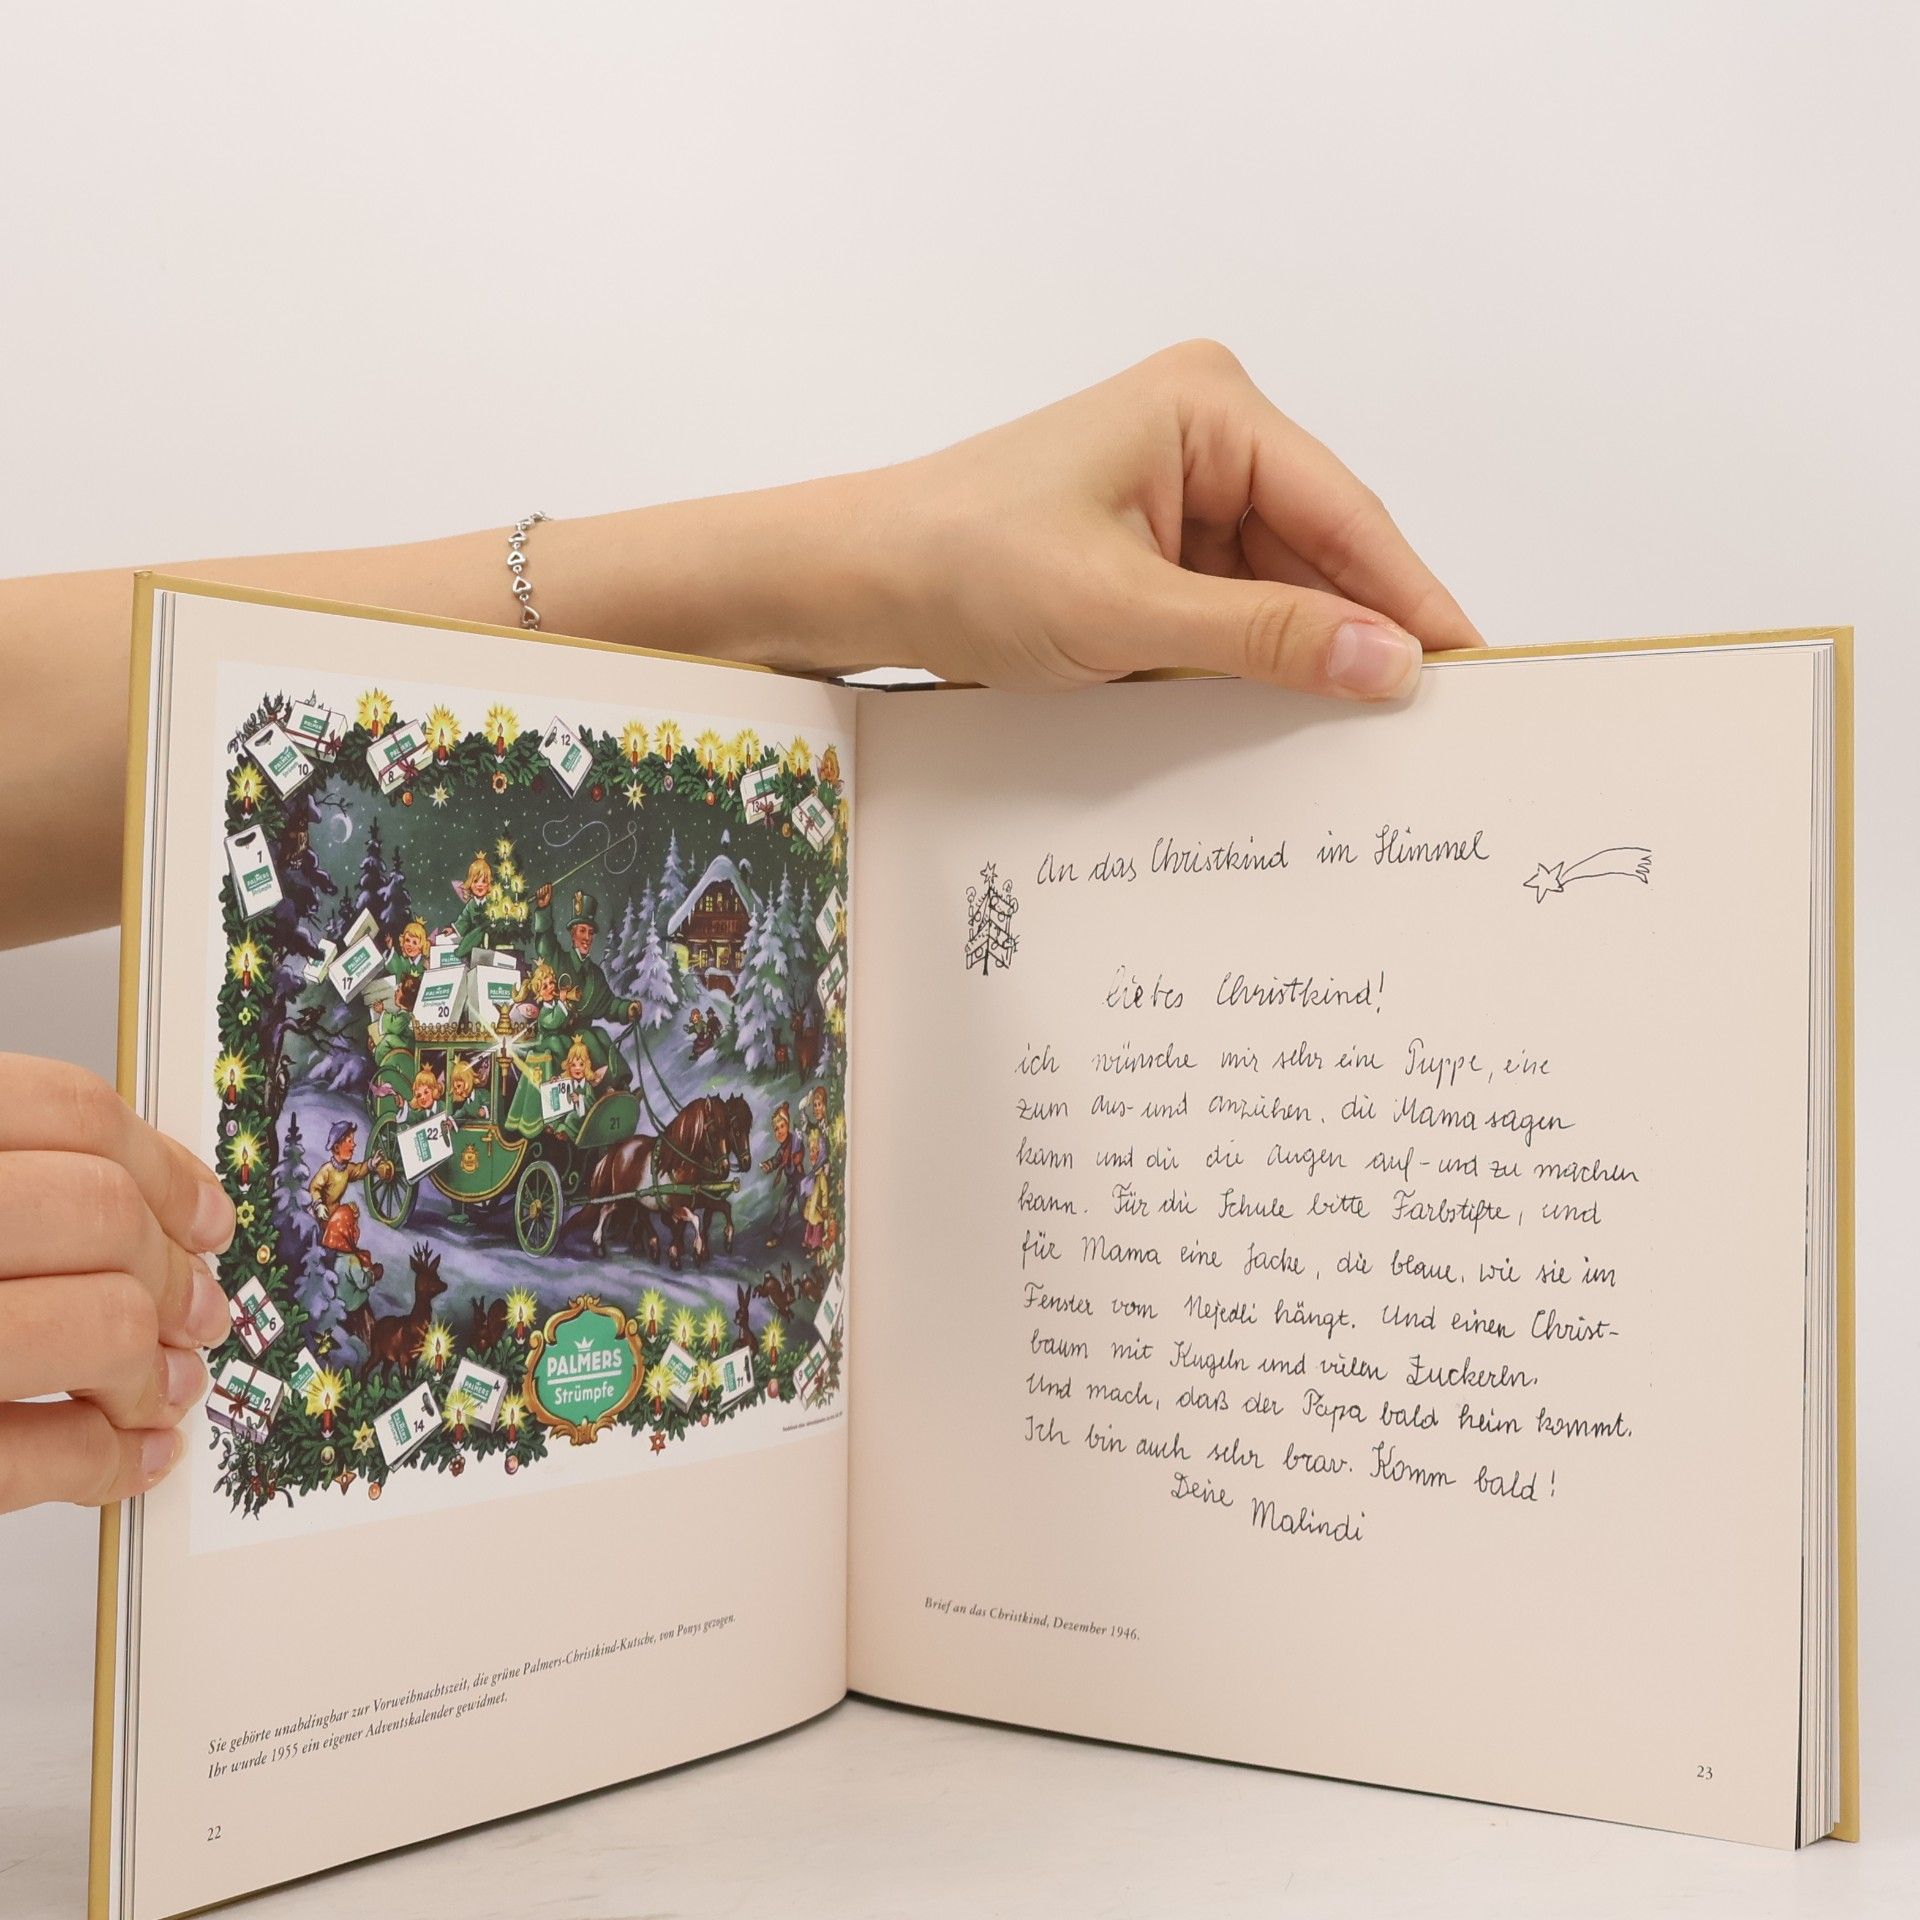 10
PALMERS
Strümpfe
8
12
13
5
1
PALMERS
Strümpfe
17
PALMERS
20
PALMERS
18
22
21
6
2
PALMERS
14
PALMERS
4
PALMERS
Strümpfe
11
9
Sie gehörte unabdingbar zur Vorweihnachtszeit, die grüne Palmers-Christkind-Kutsche, von Ponys gezogen.
Ihr wurde 1955 ein eigener Adventskalender gewidmet.
22
An das Christkind im Himmel
Liebes Christkind!
ich wünsche mir sehr eine Puppe, eine
zum aus- und anziehen. die Mama sagen
kann und die die Augen auf- und zu machen
kann. Für die Schule bitte Farbstifte, und
für Mama eine Jacke, die blaue, wie sie im
Fenster vom Nejedli hängt. Und einen Christ-
baum mit Kugeln und vielen Zuckerln.
Und mach, daß der Papa bald heim kommt.
Ich bin auch sehr brav. Komm bald!
Deine Malindi
Brief an das Christkind, Dezember 1946.
23